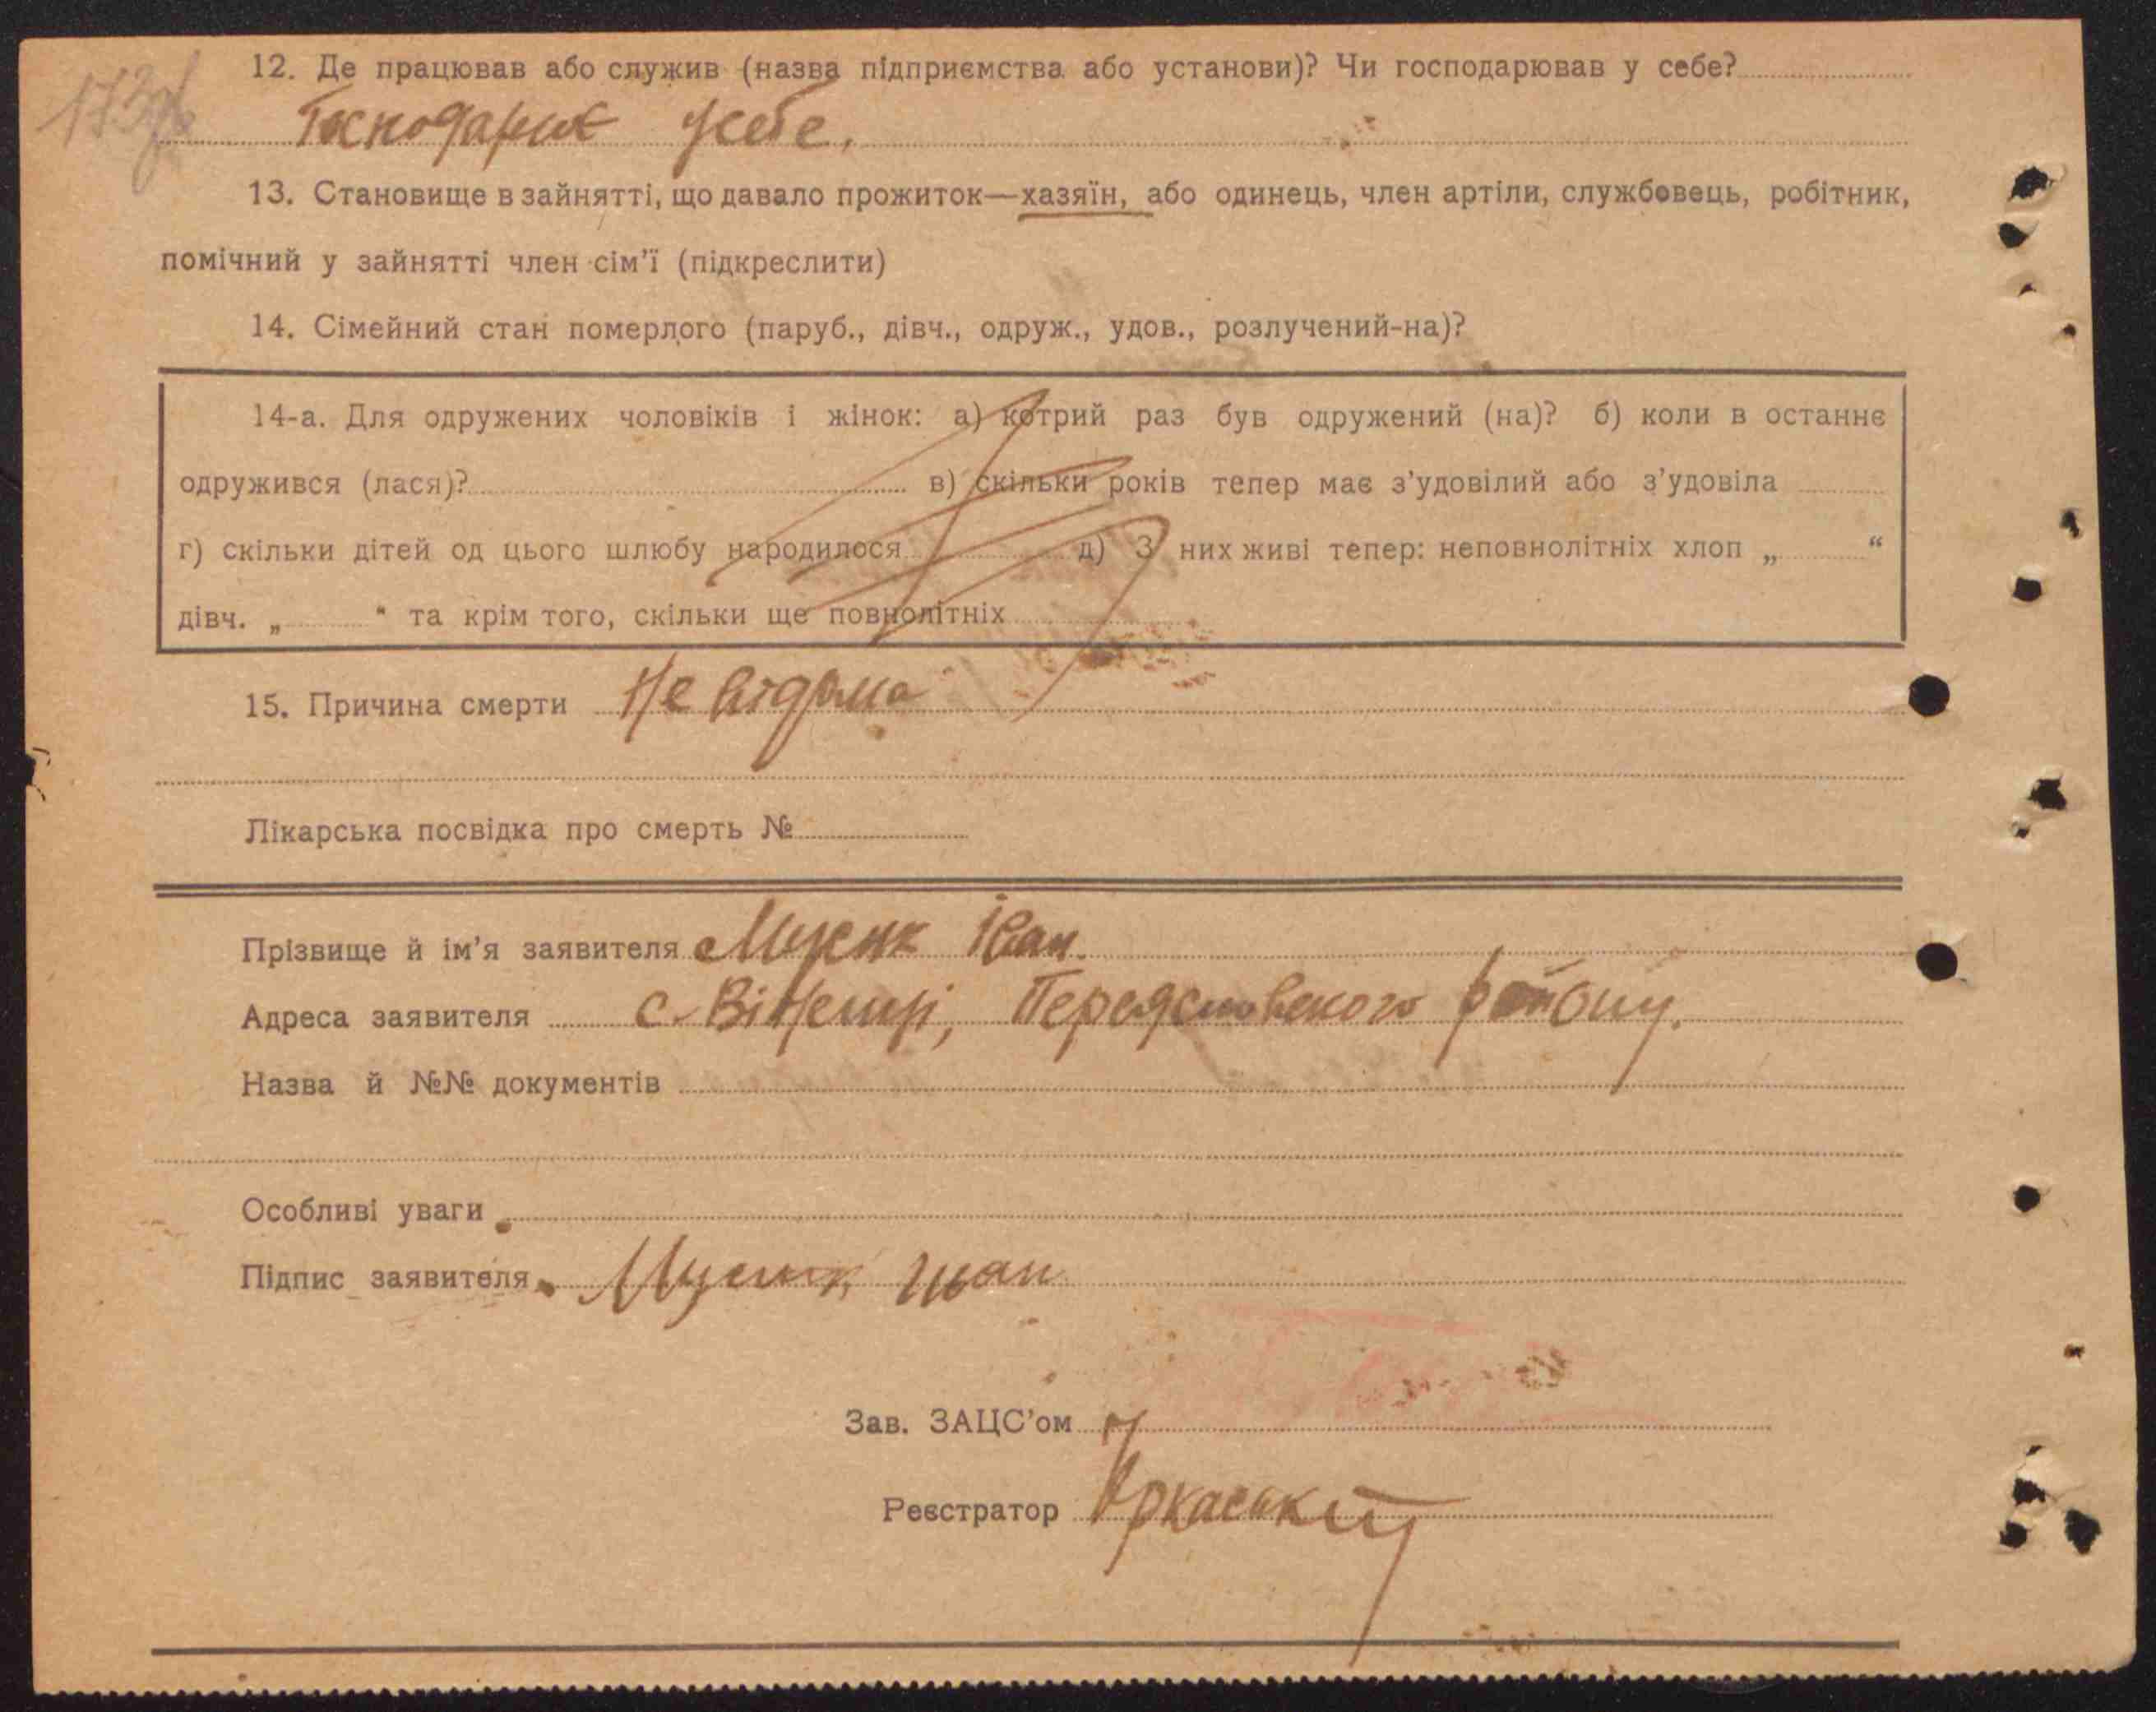 173зв
12. Де працював або служив (назва підприємства або установи)? Чи господарював у себе?
Господарює усебе.
13. Становище в зайнятті, що давало прожиток—хазяїн, або одинець, член артіли, службовець, робітник,
помічний у зайнятті член сім'ї (підкреслити)
14. Сімейний стан померлого (паруб., дівч., одруж., удов., розлучений-на)?
14-а. Для одружених чоловіків і жінок: а) котрий раз був одружений (на)? б) коли в останнє
одружився (лася)? в) скільки років тепер має з'удовілий або з'удовіла
г) скільки дітей од цього шлюбу народилося д) З них живі тепер: неповнолітніх хлоп „ “
дівч. „ “ та крім того, скільки ще повнолітніх
15. Причина смерти Не відома
Лікарська посвідка про смерть №
Прізвище й ім'я заявителя Мусик Іван.
Адреса заявителя с. Віненці, Переяславського району.
Назва й №№ документів
Особливі уваги
Підпис заявителя Мусик Иван
Зав. ЗАЦС'ом
Реєстратор